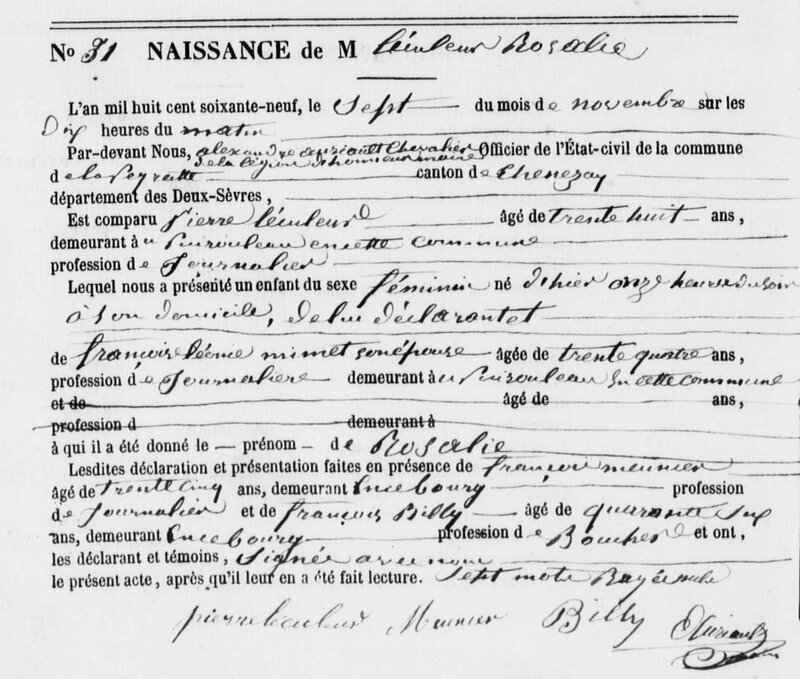 No 31 NAISSANCE de M léculeur Rosalie
L'an mil huit cent soixante-neuf, le Sept du mois de novembre sur les
Dix heures du matin
Par-devant Nous, alexandre auriault Chevalier Officier de l'État-civil de la commune
de la légion d'honneur maire
de la peyratte canton de Chenezay
département des Deux-Sèvres,
Est comparu Pierre léculeur âgé de trente huit ans,
demeurant à en cette commune
profession de Journalier
Lequel nous a présenté un enfant du sexe féminin né d'hier onze heures du soir
à son domicile, de lui déclarant et
de françoise mimet son épouse âgée de trente quatre ans,
profession de Journaliere demeurant à en cette commune
et de âgé de ans,
profession d demeurant à
à qui il a été donné le prénom de Rosalie
Lesdites déclaration et présentation faites en présence de françois meunier
âgé de trente cinq ans, demeurant En ce bourg profession
de Journalier et de françois Billy âgé de quarante six
ans, demeurant En ce bourg profession de Boucher et ont,
les déclarant et témoins, Signée avec nous
le présent acte, après qu'il leur en a été fait lecture. Sept mots Rayés nuls
pierre leculeur Meunier Billy Auriault